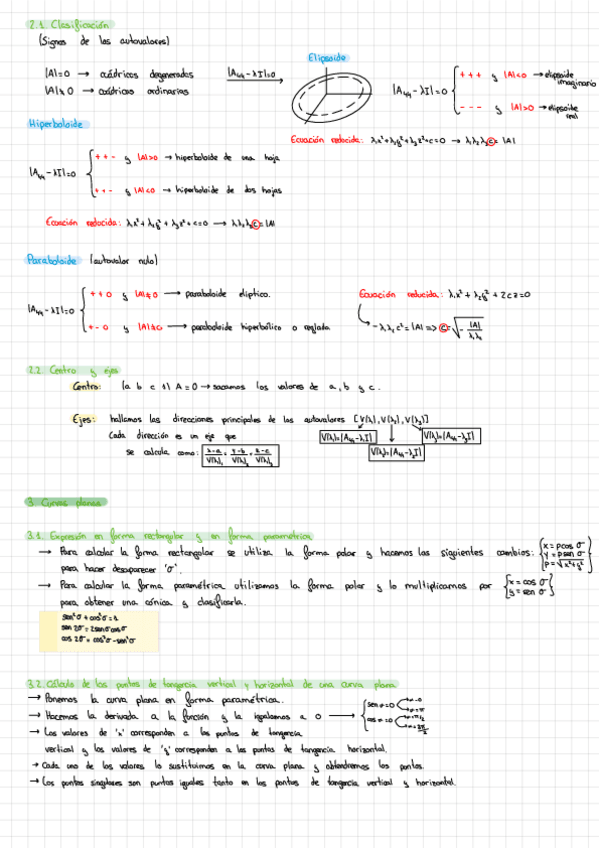 2.1. Clasificación
(Signos de los autovalores)
Elipsoide
|A|=0 → cuádricas degeneradas
|A|≠0 → cuádricas ordinarias
|A₄₄-λI|=0
|A₄₄-λI|=0
+ + + y |A|<0 → elipsoide imaginario
- - - y |A|>0 → elipsoide real
Ecuación reducida: λ₁x²+λ₂y²+λ₃z²+c=0 → λ₁λ₂λ₃c=|A|
Hiperboloide
|A₄₄-λI|=0
+ + - y |A|>0 → hiperboloide de una hoja
+ + - y |A|<0 → hiperboloide de dos hojas
Ecuación reducida: λ₁x²+λ₂y²+λ₃z²+c=0 → λ₁λ₂λ₃c=|A|
Paraboloide (autovalor nulo)
|A₄₄-λI|=0
+ + 0 y |A|≠0 → paraboloide elíptico.
+ - 0 y |A|≠0 → paraboloide hiperbólico o reglada
Ecuación reducida: λ₁x²+λ₂y²+2cz=0
-λ₁λ₂c²=|A| => c=√-|A|/λ₁λ₂
2.2. Centro y ejes
Centro: (a b c 1) A=0 → sacamos los valores de a, b y c.
Ejes: hallamos las direcciones principales de los autovalores [V(λ₁), V(λ₂), V(λ₃)]
Cada dirección es un eje que
se calcula como: x-a/V(λ)₁ = y-b/V(λ)₂ = z-c/V(λ)₃
V(λ₁)=|A₄₄-λ₁I|
V(λ₂)=|A₄₄-λ₂I|
V(λ₃)=|A₄₄-λ₃I|
3 Curvas planas
3.1. Expresión en forma rectangular y en forma paramétrica
→ Para calcular la forma rectangular se utiliza la forma polar y hacemos los siguientes cambios:
x=ρcos σ
y=ρsen σ
ρ=√x²+y²
para hacer desaparecer 'σ'.
→ Para calcular la forma paramétrica utilizamos la forma polar y lo multiplicamos por
x=cos σ
y=sen σ
para obtener una cónica y clasificarla.
sen²σ+cos²σ=1
sen 2σ=2senσcosσ
cos 2σ=cos²σ-sen²σ
3.2. Cálculo de los puntos de tangencia vertical y horizontal de una curva plana
→ Ponemos la curva plana en forma paramétrica.
→ Hacemos la derivada a la función y la igualamos a 0 →
→ Los valores de 'x' corresponden a los puntos de tangencia
vertical y los valores de 'y' corresponden a los puntos de tangencia horizontal.
→ Cada uno de los valores lo sustituimos en la curva plana y obtendremos los puntos.
→ Los puntos singulares son puntos iguales tanto en los puntos de tangencia vertical y horizontal.